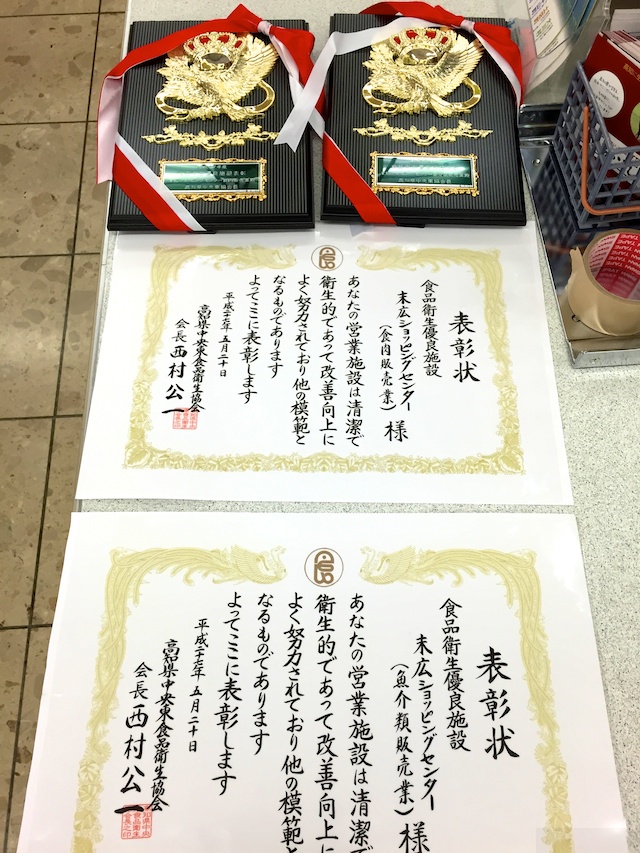 表彰状
食品衛生優良施設
末広ショッピングセンター
（食肉販売業）様
あなたの営業施設は清潔で
衛生的であって改善向上に
よく努力されており他の模範と
なるものであります
よってここに表彰します
平成二十七年五月二十日
高知県中央東食品衛生協会
会長西村公一
表彰状
食品衛生優良施設
末広ショッピングセンター
（魚介類販売業）様
あなたの営業施設は清潔で
衛生的であって改善向上に
よく努力されており他の模範と
なるものであります
よってここに表彰します
平成二十七年五月二十日
高知県中央東食品衛生協会
会長西村公一
TAPE